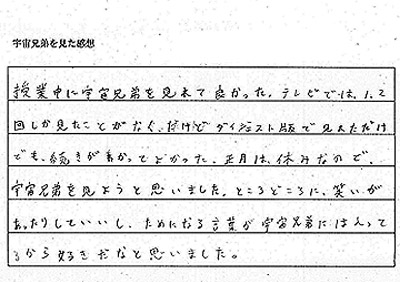 宇宙兄弟を見た感想
授業中に宇宙兄弟を見れて良かった。テレビでは、1、2
回しか見たことがなく、だけどダイジェスト版で見れただけ
でも、続きが見れてよかった。正月は、休みなので、
宇宙兄弟を見ようと思いました。ところどころに、笑いが
あったりしていいし、ためになる言葉が宇宙兄弟にはえって
るから好きだなと思いました。